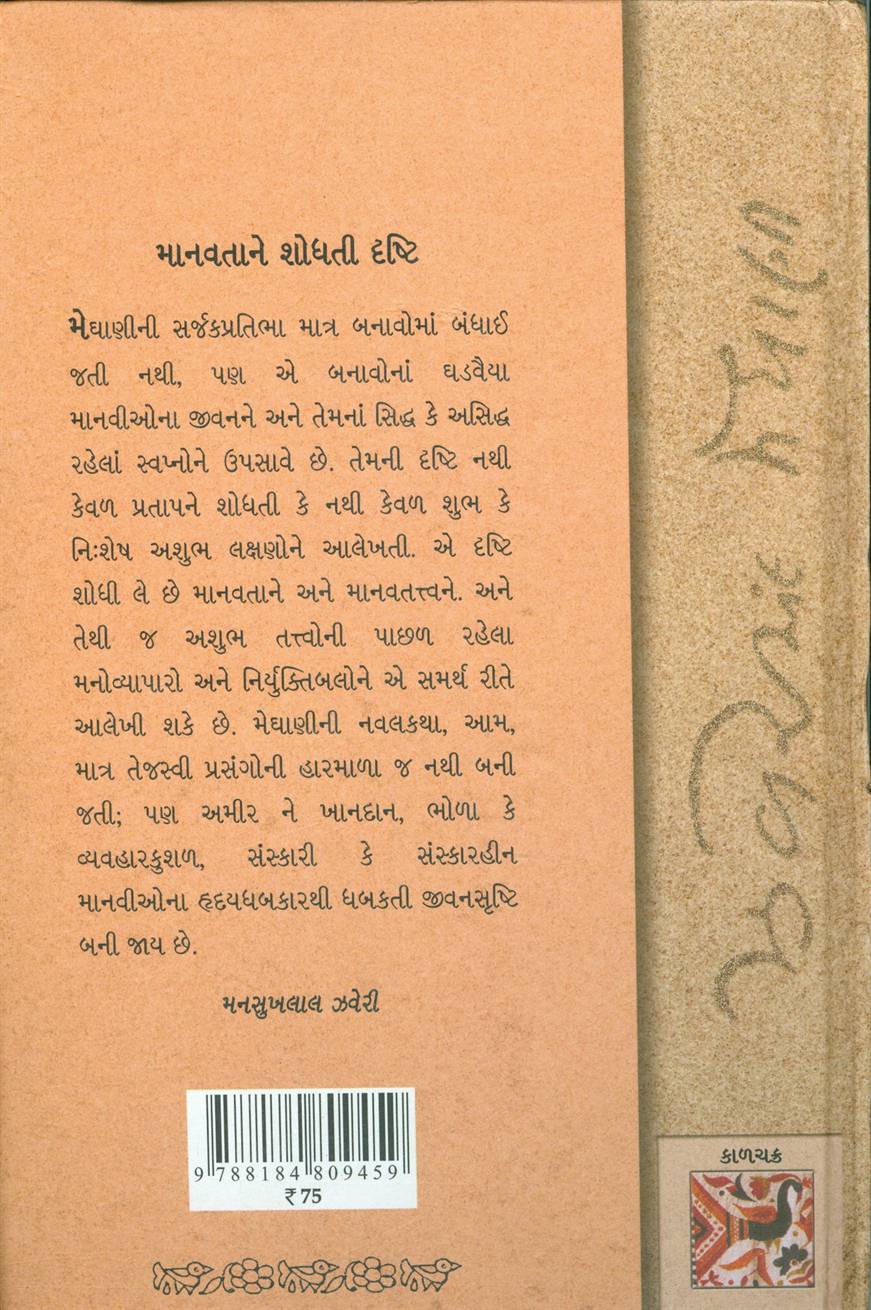 માનવતાને શોધતી દૃષ્ટિ
મેઘાણીની સર્જકપ્રતિભા માત્ર બનાવોમાં બંધાઈ
જતી નથી, પણ એ બનાવોનાં ઘડવૈયા
માનવીઓના જીવનને અને તેમનાં સિદ્ધ કે અસિદ્ધ
રહેલાં સ્વપ્નોને ઉપસાવે છે. તેમની દૃષ્ટિ નથી
કેવળ પ્રતાપને શોધતી કે નથી કેવળ શુભ કે
નિઃશેષ અશુભ લક્ષણોને આલેખતી. એ દૃષ્ટિ
શોધી લે છે માનવતાને અને માનવતત્ત્વને. અને
તેથી જ અશુભ તત્ત્વોની પાછળ રહેલા
મનોવ્યાપારો અને નિર્યુક્તિબલોને એ સમર્થ રીતે
આલેખી શકે છે. મેઘાણીની નવલકથા, આમ,
માત્ર તેજસ્વી પ્રસંગોની હારમાળા જ નથી બની
જતી; પણ અમીર ને ખાનદાન, ભોળા કે
વ્યવહારકુશળ, સંસ્કારી કે સંસ્કારહીન
માનવીઓના હૃદયધબકારથી ધબકતી જીવનસૃષ્ટિ
બની જાય છે.
મનસુખલાલ ઝવેરી
9 788184 809459
₹ 75
ઝવેરચંદ મેઘાણી
કાળચક્ર